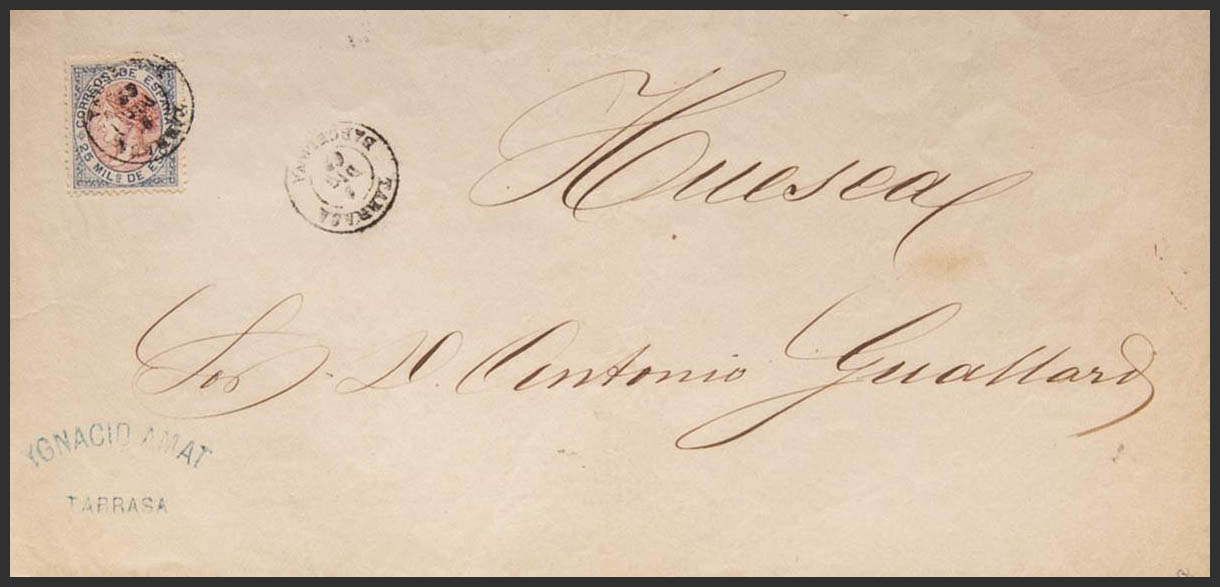 CORREOS DE ESPAÑA
25 MILS DE ESCO
TARRASA
BARCELONA
Huesca
Sor D. Antonio Guallard
YGNACIO AMAT
TARRASA